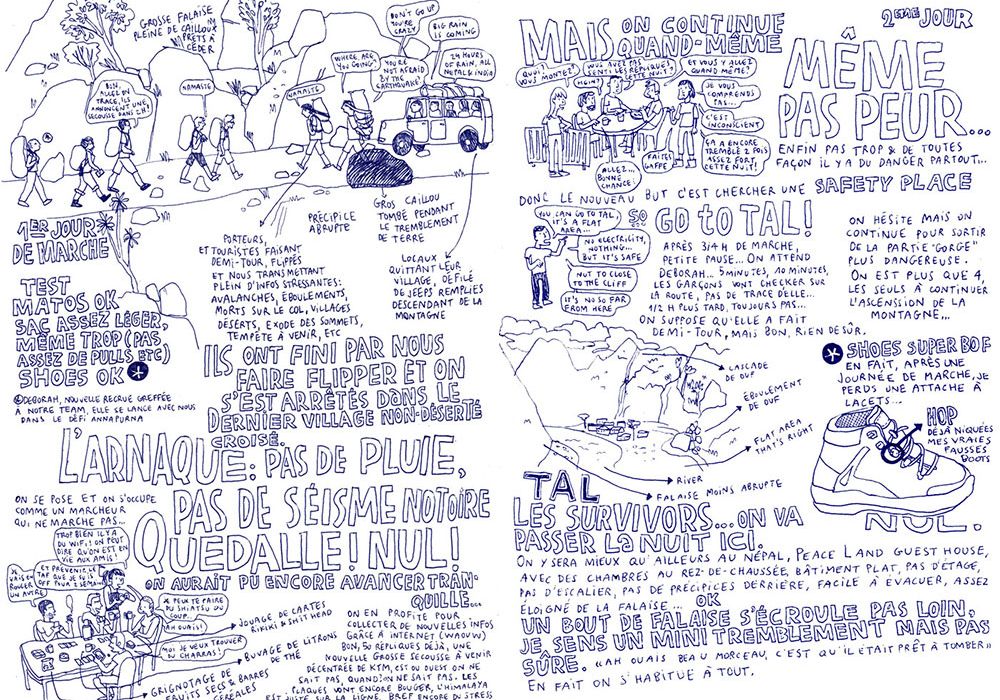 GROSSE FALAISE
PLEINE DE CAILLOUX
PRÊTS À
CÉDER
BON,
ALLEZ EN
TRACE, ILS
ANNONCENT UNE
SECOUSSE DANS 2H!
NAMASTE
NAMASTE
WHERE ARE
YOU GOING?
DON'T GO UP
YOU'RE
CRAZY
BIG RAIN
IS COMING
YOU'RE
NOT AFRAID
BY THE
EARTHQUAKE?
24 HOURS
OF RAIN, ALL
NEPAL & INDIA
1ER JOUR
DE MARCHE
TEST
MATOS OK
SAC ASSEZ LÉGER,
MÊME TROP (PAS
ASSEZ DE PULLS, ETC)
SHOES OK
DEBORAH, NOUVELLE RECRUE GREFFÉE
À NOTRE TEAM, ELLE SE LANCE AVEC NOUS
DANS LE DÉFI ANNAPURNA
PORTEURS,
ET TOURISTES FAISANT
DEMI-TOUR, FLIPPÉS
ET NOUS TRANSMETTANT
PLEIN D'INFOS STRESSANTES:
AVALANCHES, ÉBOULEMENTS,
MORTS SUR LE COL, VILLAGES
DÉSERTS, EXODE DES SOMMETS,
TEMPÊTE À VENIR, ETC
PRÉCIPICE
ABRUPTE
GROS CAILLOU
TOMBÉ PENDANT
LE TREMBLEMENT
DE TERRE
LOCAUX
QUITTANT LEUR
VILLAGE, DÉFILÉ
DE JEEPS REMPLIES
DESCENDANT DE LA
MONTAGNE
ILS ONT FINI PAR NOUS
FAIRE FLIPPER ET ON
S'EST ARRÊTÉS DANS LE
DERNIER VILLAGE NON-DÉSERTÉ
CROISÉ.
L'ARNAQUE: PAS DE PLUIE,
PAS DE SÉISME NOTOIRE
QUEDALLE! NUL!
ON AURAIT PU ENCORE AVANCER TRAN-
QUILLE...
ON SE POSE ET ON S'OCCUPE
COMME UN MARCHEUR
QUI NE MARCHE PAS...
TROP BIEN IL Y A
DU WIFI! ON PEUT
DIRE QU'ON EST EN
VIE AUX AMIS!
ET PRÉVENIR LE
TAF QUE JE SUIS
OFF POUR 2 SEM
JE
VAIS
UN AVRE
JE PEUX TE FAIRE
DU SHIATSU DU
COUP.
AH OUAIS!
MOI JE VEUX TROUVER
DU CHARRAS!
JOUAGE DE CARTES
RIKIKI & SHIT HEAD
BUVAGE DE LITRONS
DE THÉ
GRIGNOTAGE DE
FRUITS SECS & BARRES
CÉRÉALES
ON EN PROFITE POUR
COLLECTER DE NOUVELLES INFOS
GRÂCE À INTERNET (WAOUW)
BON, 50 RÉPLIQUES DÉJÀ, UNE
NOUVELLE GROSSE SECOUSSE À VENIR
DÉCENTRÉE DE KTM, EST OU OUEST ON NE
SAIT PAS, QUAND: ON NE SAIT PAS. LES
PLAQUES VONT ENCORE BOUGER, L'HIMALAYA
EST JUSTE SUR LA LIGNE. BREF ENCORE DU STRESS
MAIS ON CONTINUE
QUAND-MÊME
2EME JOUR
MÊME
PAS PEUR...
QUOI?
VOUS MONTEZ?
HEIN?!
VOUS AVEZ PAS
SENTI LES RÉPLIQUES
CETTE NUIT?
ET VOUS Y ALLEZ
QUAND MÊME?
JE VOUS
COMPRENDS
PAS...
C'EST
INCONSCIENT
ÇA A ENCORE
TREMBLÉ 2 FOIS
ASSEZ FORT
CETTE NUIT!
FAITES
GAFFE
ALLEZ...
BONNE
CHANCE!
ENFIN PAS TROP & DE TOUTES
FAÇON IL Y A DU DANGER PARTOUT...
DONC LE NOUVEAU BUT C'EST CHERCHER UNE SAFETY PLACE
YOU CAN GO TO TAL,
IT'S A FLAT
AREA...
NO ELECTRICITY,
NOTHING...
BUT IT'S SAFE
NOT TO CLOSE
TO THE CLIFF
IT'S NO SO FAR
FROM HERE
SO GO TO TAL!
APRÈS 3/4 H DE MARCHE,
PETITE PAUSE... ON ATTEND
DEBORAH... 5 MINUTES, 10 MINUTES,
LES GARÇONS VONT CHECKER SUR
LA ROUTE, PAS DE TRACE D'ELLE...
1/2 H PLUS TARD, TOUJOURS PAS...
ON SUPPOSE QU'ELLE A FAIT
DEMI-TOUR, MAIS BON, RIEN DE SÛR.
ON HÉSITE MAIS ON
CONTINUE POUR SORTIR
DE LA PARTIE "GORGE"
PLUS DANGEREUSE.
ON EST PLUS QUE 4,
LES SEULS À CONTINUER
L'ASCENSION DE LA
MONTAGNE...
CASCADE
DE OUF
ÉBOULEMENT
DE OUF
FLAT AREA
THAT'S RIGHT
RIVER
FALAISE MOINS ABRUPTE
SHOES SUPER BOF
EN FAIT, APRÈS UNE
JOURNÉE DE MARCHE, JE
PERDS UNE ATTACHE À
LACETS...
HOP
DÉJÀ NIQUÉES
MES VRAIES
FAUSSES
BOOTS
NUL.
TAL
LES SURVIVORS... ON VA
PASSER LA NUIT ICI.
ON Y SERA MIEUX QU'AILLEURS AU NÉPAL, PEACE LAND GUEST HOUSE,
AVEC DES CHAMBRES AU REZ-DE-CHAUSSÉE, BÂTIMENT PLAT, PAS D'ÉTAGE,
PAS D'ESCALIER, PAS DE PRÉCIPICES DERRIÈRE, FACILE À ÉVACUER, ASSEZ
ÉLOIGNÉ DE LA FALAISE... OK
UN BOUT DE FALAISE S'ÉCROULE PAS LOIN,
JE SENS UN MINI TREMBLEMENT MAIS PAS
SÛRE. «AH OUAIS BEAU MORCEAU, C'EST QU'IL ÉTAIT PRÊT À TOMBER»
EN FAIT ON S'HABITUE À TOUT.